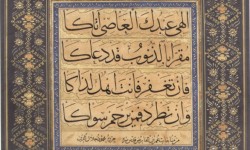 الهي عبدك العاصي أتاكا
مقرا بالذنوب قد دعاكا
فان تغفر فانت لهذا كا
وان تطرد فمن يرحم سواكا